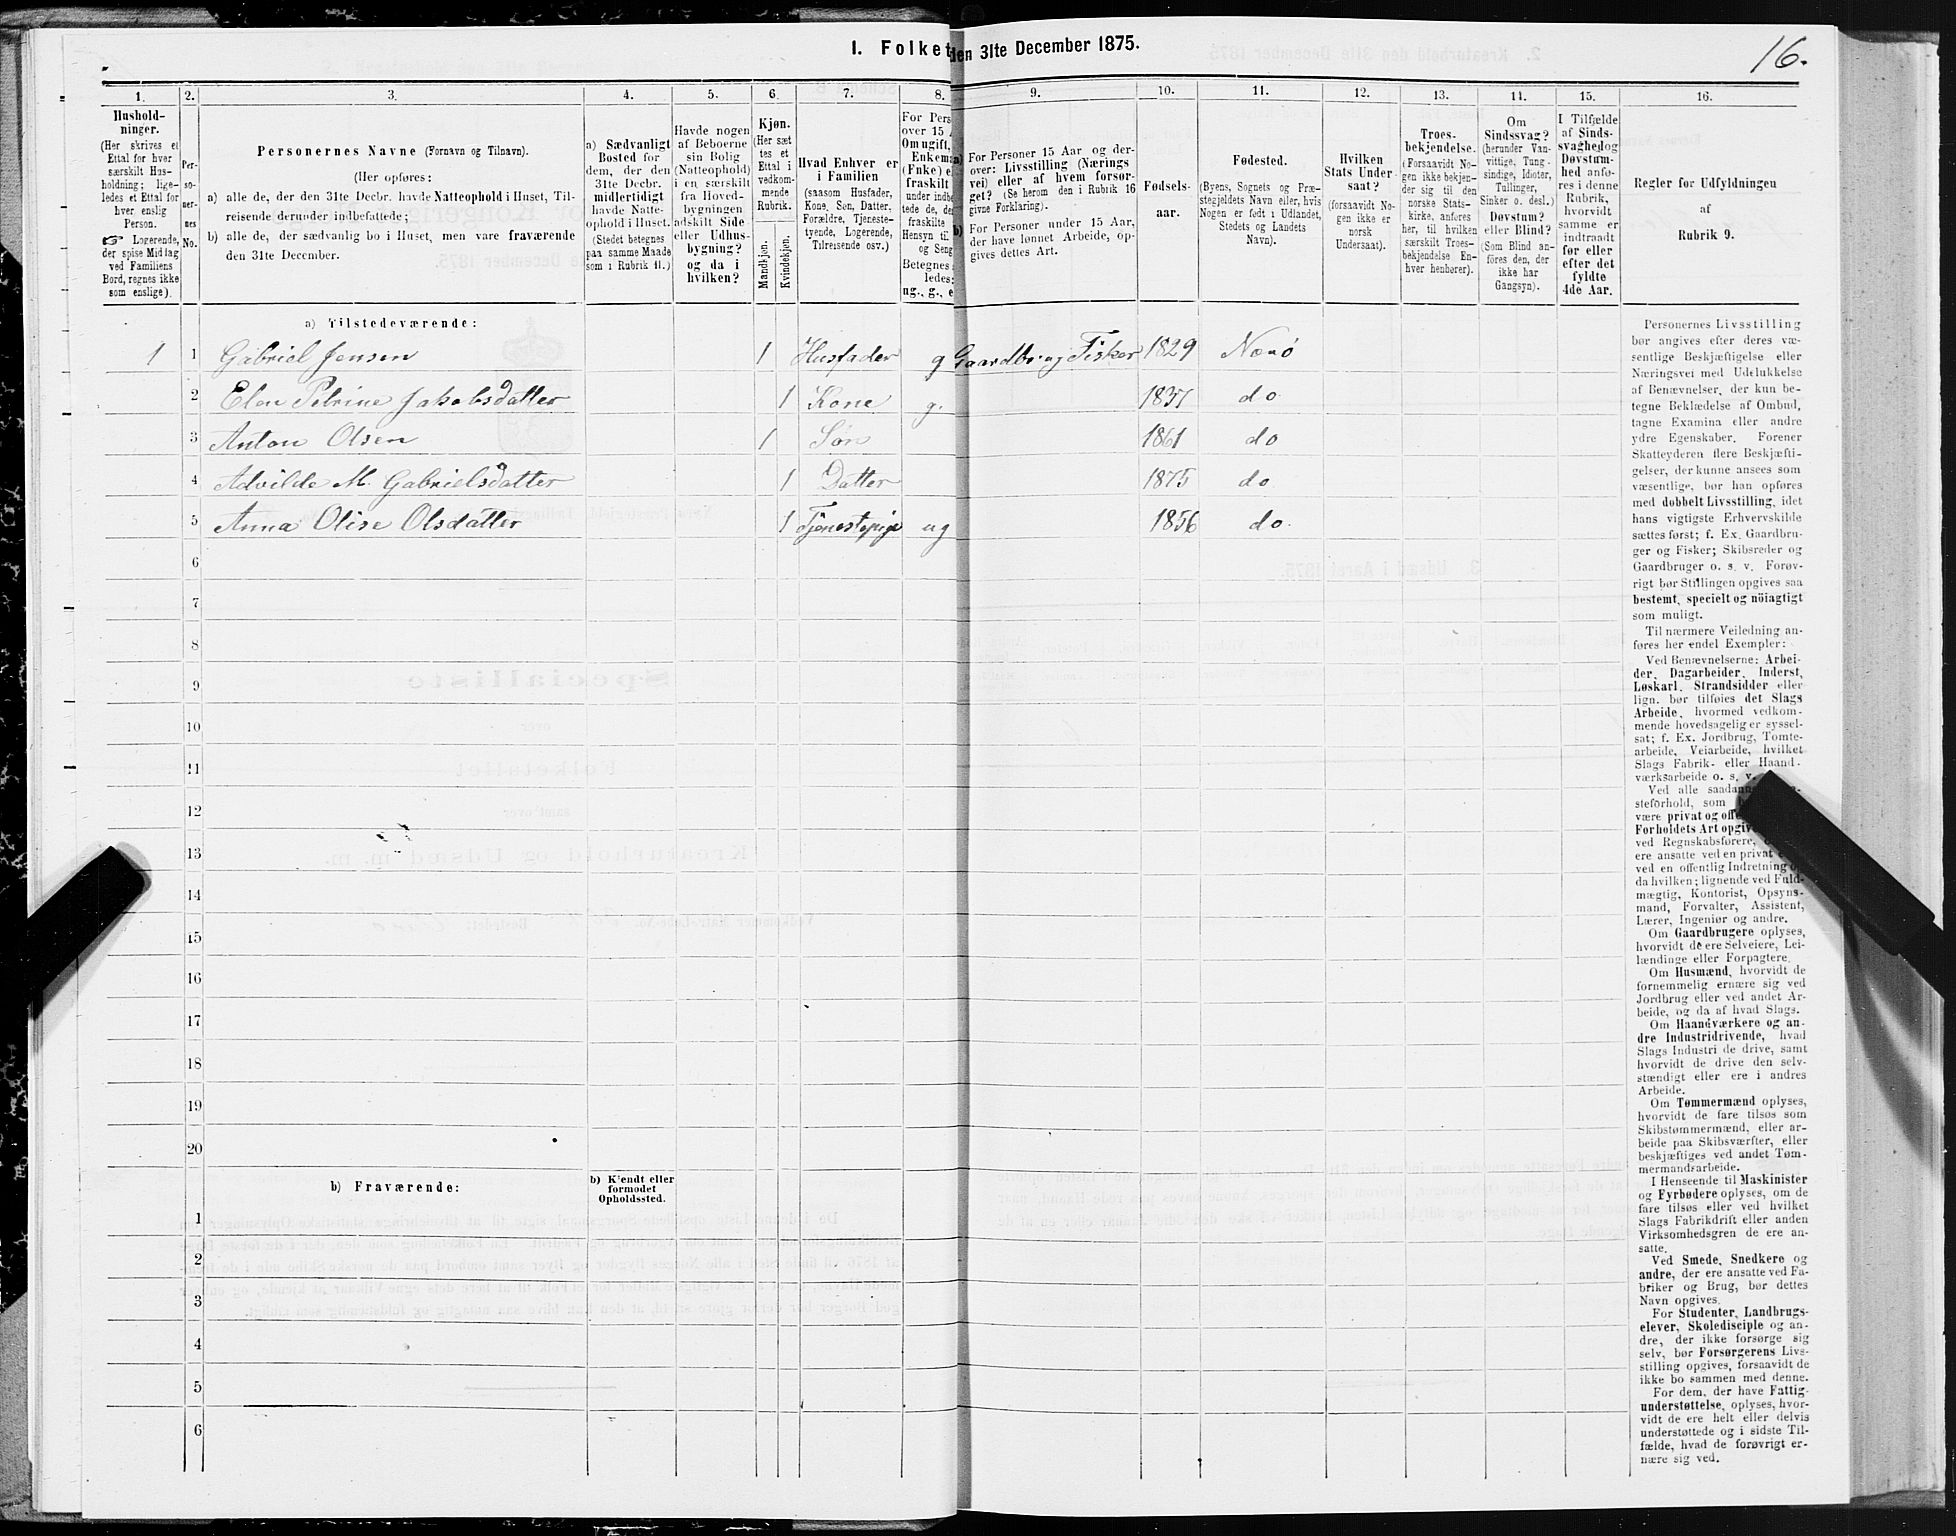 1. Folket
den 31te December 1875.
16.
1. 2. 3. 4. 5. 6. 7. 8. 9. 10. 11. 12. 13. 14. 15. 16.
Hushold-
ninger.
(Her skrives et
Ettal for hver
særskilt Hus-
holdning; lige-
ledes et Ettal for
hver enslig
Person.
☞ Logerende,
der spise Middag
ved Familiens
Bord, regnes ikke
som enslige).
Per-
so-
ner-
nes
No.
Personernes Navne (Fornavn og Tilnavn).
(Her opføres:
a) alle de, der den 31te Decbr. havde Natteophold i Huset, Til-
reisende derunder indbefattede;
b) alle de, der sædvanlig bo i Huset, men vare fraværende
den 31te December.
a) Sædvanligt
Bosted for
dem, der den
31te Decbr.
midlertidigt
havde Natte-
ophold i Huset.
(Stedet betegnes
paa samme Maade
som i Rubrik 11.)
Havde nogen
af Beboerne
sin Bolig
(Natteophold)
i en særskilt
fra Hoved-
bygningen
adskilt Side
eller Udhus-
bygning?
og da i
hvilken?
Kjøn.
(Her sæt
tes et
Ettal i
vedkom-
mende
Rubrik.
Mandkjøn.
Kvindekjøn.
Hvad Enhver er
i Familien
(saasom Husfader,
Kone, Søn, Datter,
Forældre, Tjeneste-
tyende, Logerende,
Tilreisende osv.)
For Pers
over 15 A
Om ugift,
Enkema
(Fnke) e
fraskilt
under indbe
tede de, de
fraskilte
Hensyn til
og Seng
Betegnes
ledes:
ug., g., e
a) For Personer 15 Aar og der-
over: Livsstilling (Nærings
vei) eller af hvem forsør-
get? (Se herom den i Rubrik 16
givne Forklaring).
b) For Personer under 15 Aar,
der have lønnet Arbeide, op-
gives dettes Art.
Fødsels-
aar.
Fødested.
(Byens, Sognets og Præ-
stegjeldets Navn eller, hvis
Nogen er født i Udlandet,
Stedets og Landets
Navn).
Hvilken
Stats Under
saat?
(forsaavidt No-
gen ikke er
norsk
Undersaat).
Troes-
bekjendelse.
(Forsaavidt No-
gen ikke bekjen-
der sig til den
norske Stats-
kirke, anføres
her, til hvilken
særskilt Troes-
bekjendelse En-
hver henhører).
Om
Sindssvag?
(herunder Van-
vittige, Tung-
sindige, Idioter,
Tullinger,
Sinker o. desl.)
Døvstum?
eller Blind?
(Som Blind an-
føres den, der
ikke har
Gangsyn).
I Tilfælde
af Sinds-
svaghed og
Døvstum-
hed anfø-
res i denne
Rubrik,
hvorvidt
samme er
indtraadt
før eller
efter det
fyldte
4de Aar.
Regler for Udfyldningen
af
Rubrik 9.
a) Tilstedeværende:
1 1 Gabriel Jensen 1 Husfader g Gaardbr og Fisker 1829 Nærø
2 Elen Petrine Jakobsdatter 1 Kone g. 1837 do
3 Anton Olsen 1 Søn 1861 do
4 Advilde M. Gabrielsdatter 1 Datter 1875 do
5 Anna Olise Olsdatter 1 Tjenestepige ug 1856 do.
6
7
8
9
10
11
12
13
14
15
16
17
18
19
20
b) Fraværende:
b) Kjendt eller
formodet
Opholdssted.
1
2
3
4
5
6
Personernes Livsstilling
bør angives efter deres væ-
sentlige Beskjæftigelse eller
Næringsvei med Udelukkelse
af Benævnelser, der kun be-
tegne Beklædelse af Ombud,
tagne Examina eller andre
ydre Egenskaber. Forener
Skatteyderen flere Beskjæfti-
gelser, der kunne ansees som
væsentlige, bør han opføres
med dobbelt Livsstilling, idet
hans vigtigste Erhvervskilde
sættes først; f. Ex. Gaardbru-
ger og Fisker; Skibsreder og
Gaardbruger o. s. v. Forøv-
rigt bør Stillingen opgives saa
bestemt, specielt og nöiagtigt
som muligt.
Til nærmere Veiledning an-
føres her endel Exempler:
Ved Benævnelserne: Arbei-
der, Dagarbeider, Inderst,
Løskarl, Strandsidder eller
lign. bør tilføies det Slags
Arbeide, hvormed vedkom-
mende hovedsagelig er syssel-
sat; f. Ex. Jordbrug, Tomte-
arbeide, Veiarbeide, hvilket
Slags Fabrik- eller Haand-
værksarbeide o. s. v.
Ved alle saadan
steforhold, som
være privat og off
Forholdets Art opgiv
ved Regnskabsførere,
ere ansatte ved en privat
ved en offentlig Indretning
da hvilken; lignende ved Fuld-
mægtig, Kontorist, Opsyns-
mand, Forvalter, Assistent,
Lærer, Ingeniør og andre.
Om Gaardbrugere oplyses,
hvorvidt de ere Selveiere, Lei-
lændinge eller Forpagtere.
Om Husmænd, hvorvidt de
fornemmelig ernære sig ved
Jordbrug eller ved andet Ar-
beide, og da af hvad Slags.
Om Haandværkere og an-
dre Industridrivende, hvad
Slags Industri de drive, samt
hvorvidt de drive den selv-
stændigt eller ere i andres
Arbeide.
Om Tømmermænd oplyses,
hvorvidt de fare tilsøs som
Skibstømmermænd, eller ar-
beide paa Skibsværfter, eller
beskjæftiges ved andet Tøm-
mermandsarbeide.
I Henseende til Maskinister
og Fyrbødere oplyses, om de
fare tilsøs eller ved hvilket
Slags Fabrikdrift eller anden
Virksomhedsgren de ere an-
satte.
Ved Smede, Snedkere og
andre, der ere ansatte ved Fa-
briker og Brug, bør dettes
Navn opgives.
For Studenter, Landbrugs-
elever, Skoledisciple og an-
dre, der ikke forsørge sig
selv, bør Forsørgerens Livs-
stilling opgives, forsaavidt de
ikke bo sammen med denne.
For dem, der have Fattig-
understøttelse, oplyses, hvor-
vidt de ere helt eller delvis
understøttede og i sidste Til-
fælde, hvad de forøvrigt er-
nære sig ved.